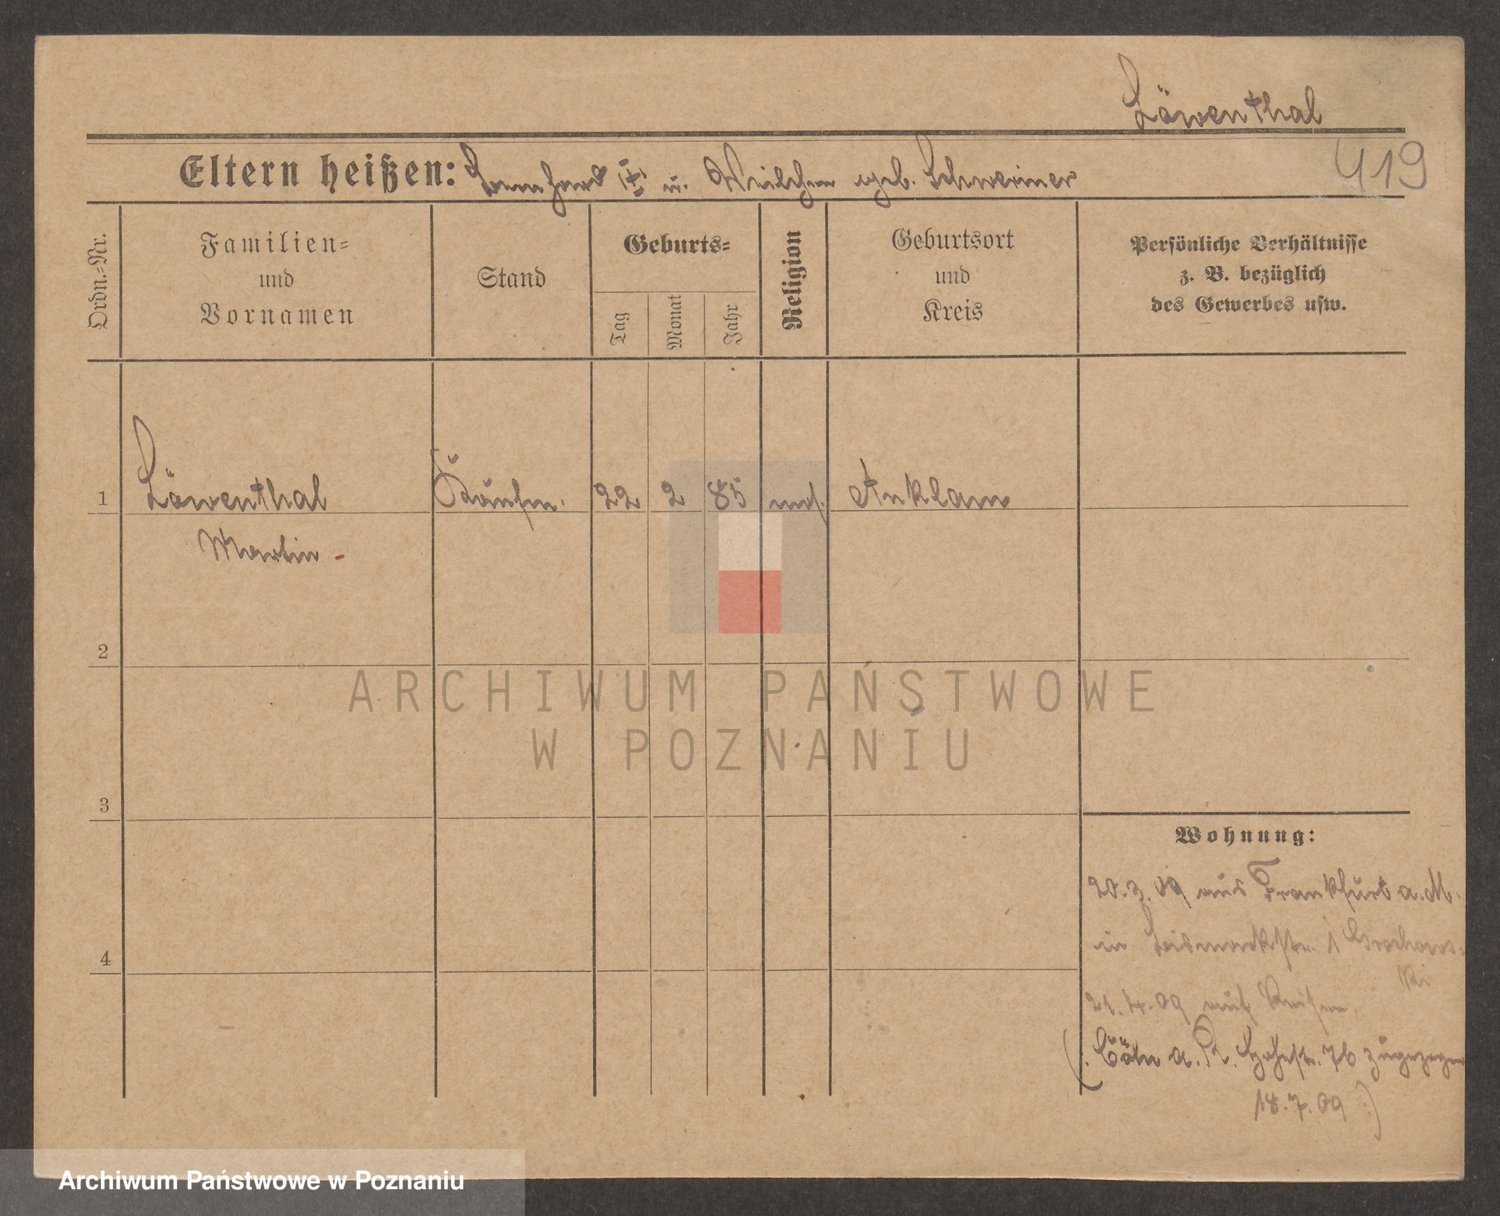 Löwenthal
419
Eltern heißen: u. geb. Schweriner
Ordn.=Nr.
Familien=
und
Vornamen
Stand
Geburts=
Tag
Monat
Jahr
Religion
Geburtsort
und
Kreis
Persönliche Verhältnisse
z. B. bezüglich
des Gewerbes usw.
1 Löwenthal Kaufm. 22 2 85 mos. Anklam
Martin
2
ARCHIWUM PAŃSTWOWE
W POZNANIU
3
Wohnung:
20.3.09 aus Frankfurt a. M.
in Bismarckstr. 1 Grochows-
ki
4
21.4.09 auf Reisen
(. Cöln a. R. 76 zugezogen
18.7.09 .)
Archiwum Państwowe w Poznaniu